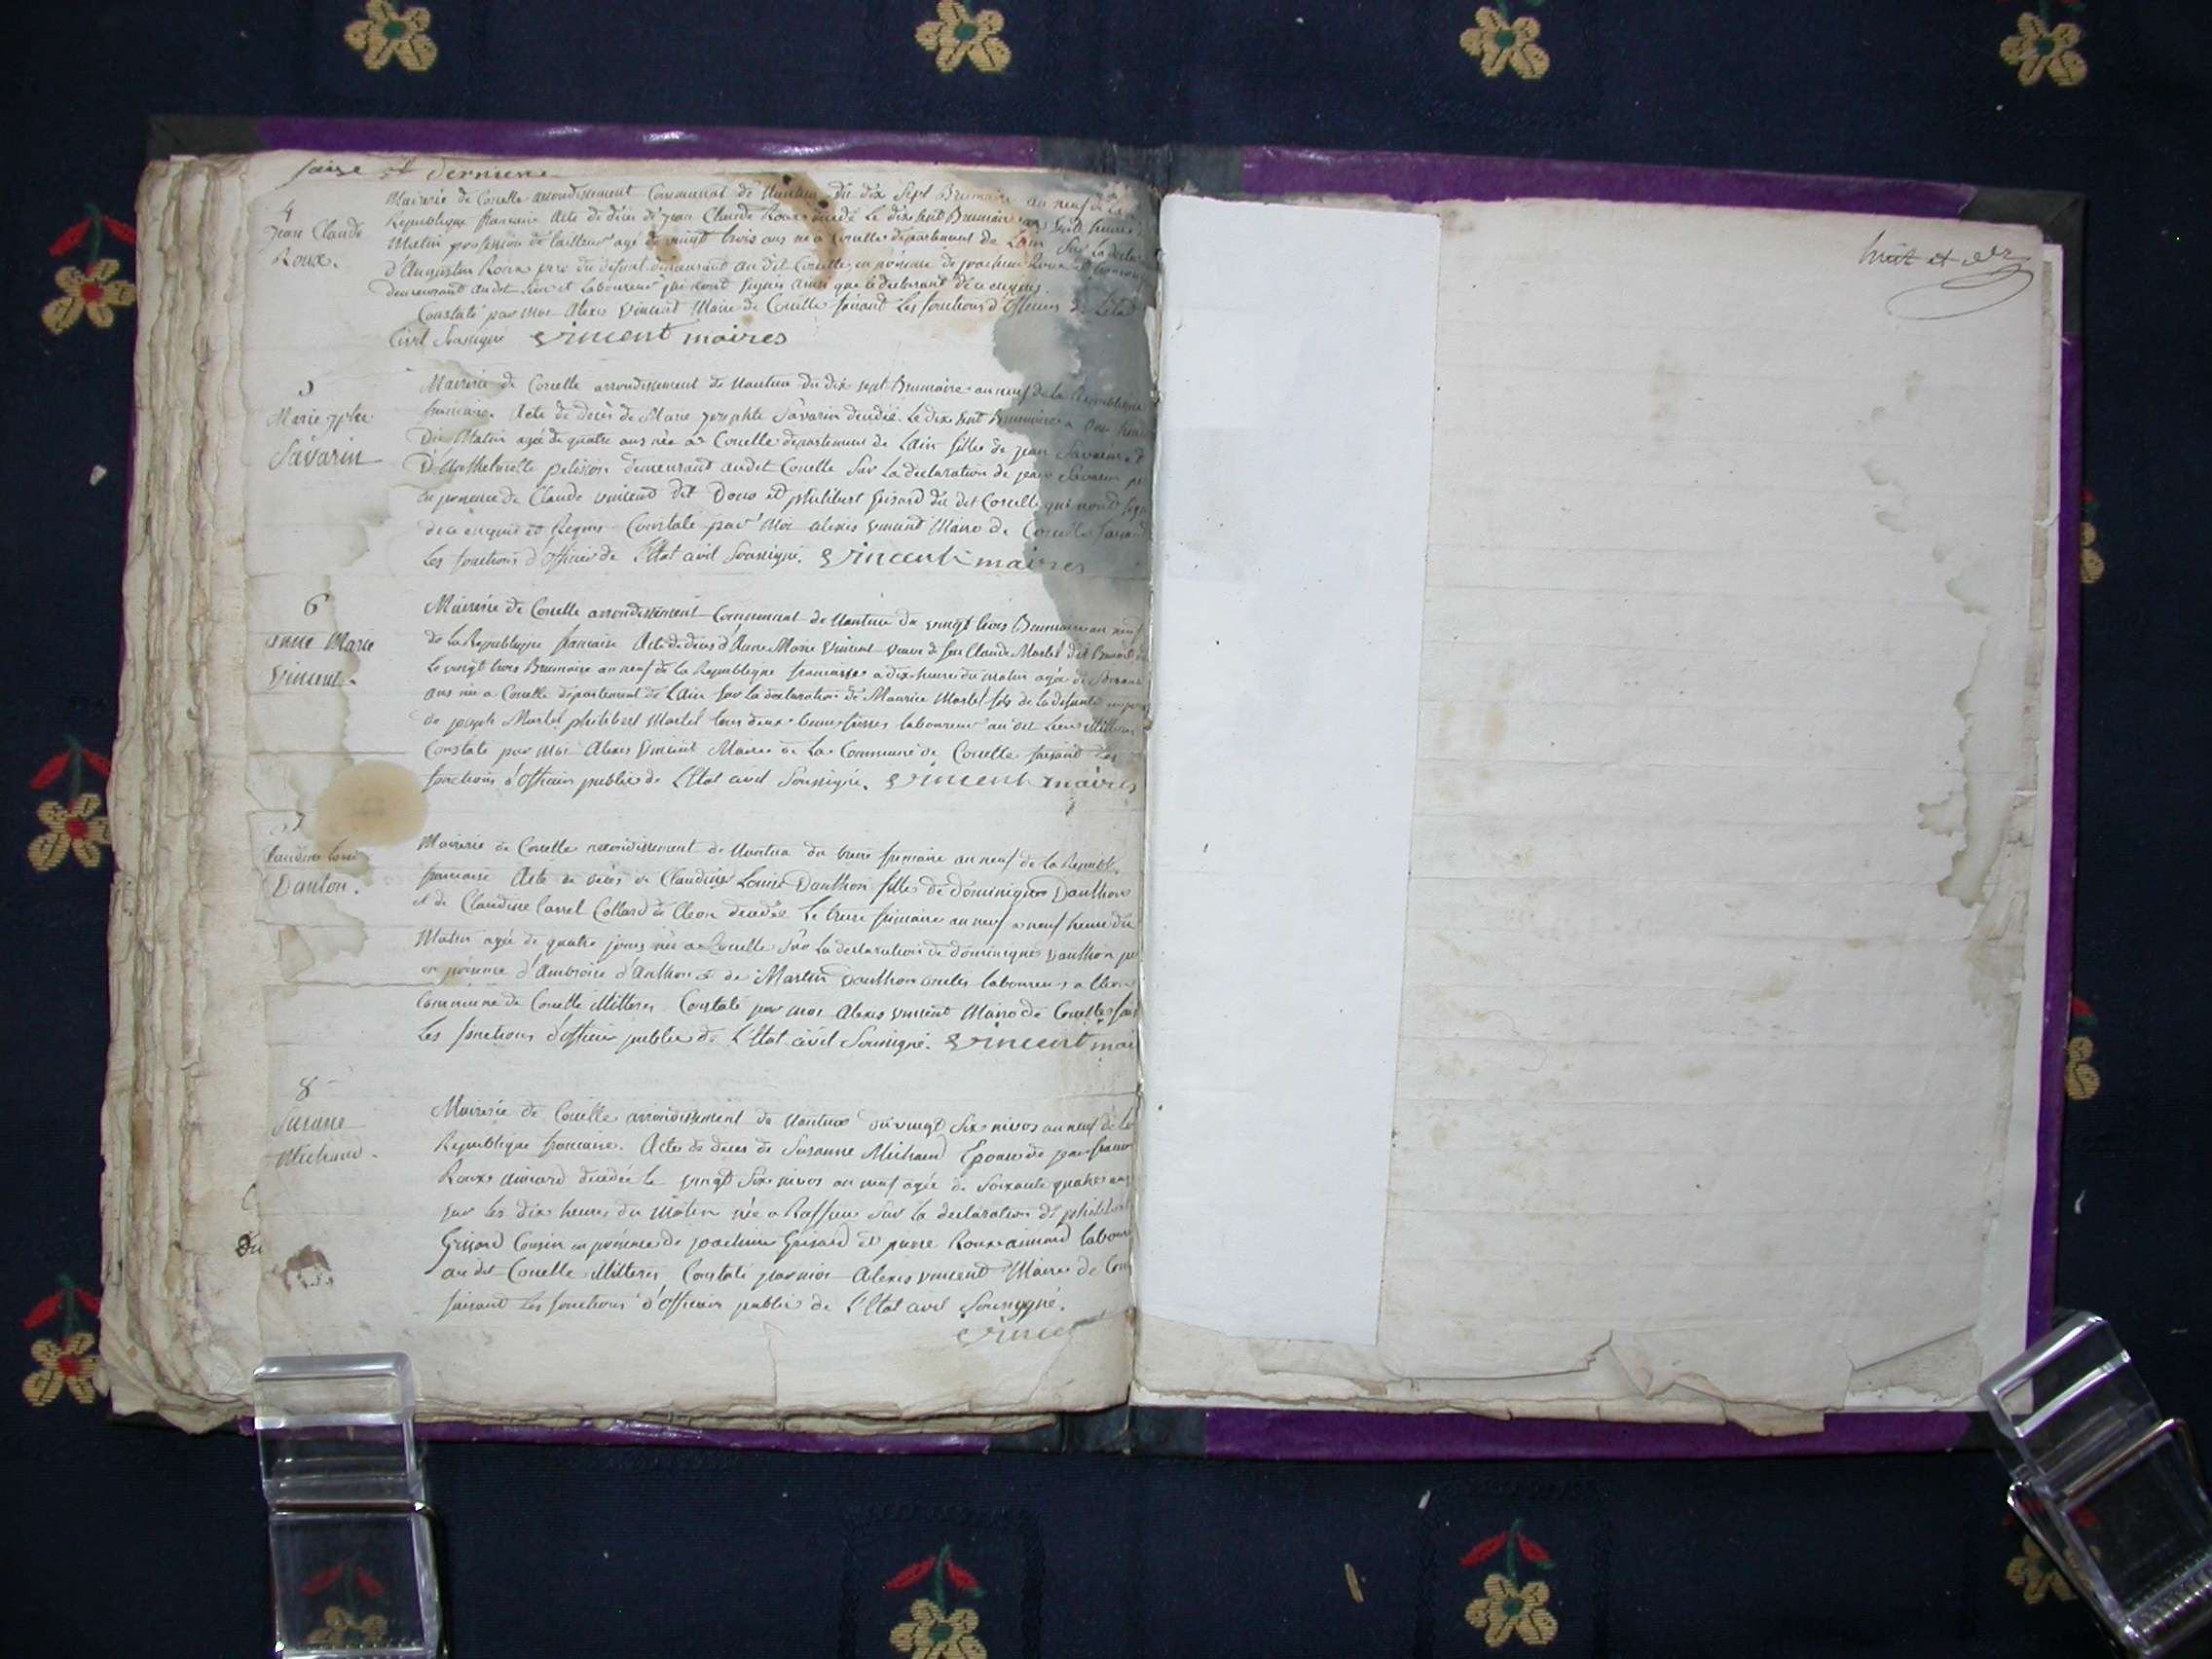 et derniere
4
Jean Claude
Roux.
Mairerie de Corcelle arrondissement Communal de Nantua du dix Sept Brumaire an neuf de la
Republique francaise Acte de décès de Jean Claude Roux décédé Le dix Sept Brumaire heure
Matin profession de tailleur agé de vingt trois ans né a Corcelle departement de Lain Sur La declar
d'Augustin Roux pere du défunt demeurant au dit Corcelle en présence de joachim Roux et
demeurant audit Lieu et Laboureur qui nont signés ainsi que le declarant de ce enquis.
Constaté par moi Alexis Vincent Maire de Corcelle faisant Les fonctions d'officier de Létat
Civil Soussigné Vincent maires
5
Marie jphte
Savarin
Mairerie de Corcelle arrondissement de Nantua du dix sept Brumaire an neuf de la Republique
francaise. Acte de décès de Marie Josephte Savarin décédée Le dix Sept Brumaire a heure
Du Matin agée de quatre ans née a Corcelle departement de Lain fille de jean Savarin et
demeurant audit Corcelle Sur La declaration de jean Savarin pe
en présence de Claude vincent dit et philibert Grisard du dit Corcelle qui nont sign
de ce enquis et Requis Constaté par Moi alexis vincent Maire de Corcelle faisant
Les fonctions d'officier de l'Etat civil Soussigné. Vincent maires
6
anne Marie
Vincent.
Mairerie de Corcelle arrondissement Communal de Nantua du vingt trois Brumaire an neuf
de la Republique francaise Acte de décès d'Anne Marie Vincent veuve de feu Claude Martel dit
Le vingt trois Brumaire an neuf de la Republique francaise a dix heure du matin agée de
ans née a Corcelle departement de Lain Sur La declaration de Maurice Martel fils de La defunte en
de joseph Martel philibert Martel tous deux laboureur au dit Lieu illitteres
Constaté par moi Alexis Vincent Maire de La Commune de Corcelle faisant Les
fonctions d'officier public de L'Etat civil Soussigné. Vincent maires
7
Claudine Louise
Danton.
Mairerie de Corcelle arrondissement de Nantua du treize frimaire an neuf de la Republ.
francaise Acte de décès de Claudine Louise Danthon fille de dominique Danthon
et de Claudine Carrel Collard de Cleon décédée Le treize frimaire an neuf a neuf heure du
Matin agée de quatre jours née a Corcelle Sur La declaration de dominique Danthon pe
en présence d'Ambroise d'Anthon et de Martin Danthon laboureurs a Cleon
Commune de Corcelle illitteres Constaté par moi Alexis vincent Maire de Corcelle fais
Les fonctions d'officier public de L'Etat civil Soussigné. Vincent mai
8
Susanne
Michaud.
Mairerie de Corcelle arrondissement de Nantua du vingt Six nivos an neuf de la
Republique francaise. Actes de décès de Susanne Michaud Epouse de jean francois
Roux aimard décédée le vingt Six nivos an neuf agée de Soixante quatre ans
sur les dix heures du Matin née a Ruffieu Sur La declaration de philibert
Grisard Cousin en présence de joachim Grisard et pierre Roux aimard labour
au dit Corcelle illitteres Constaté par moi Alexis vincent Maire de Cor
faisant Les fonctions d'officier public de L'Etat civil Soussigné.
Vincent
Du
huit et der